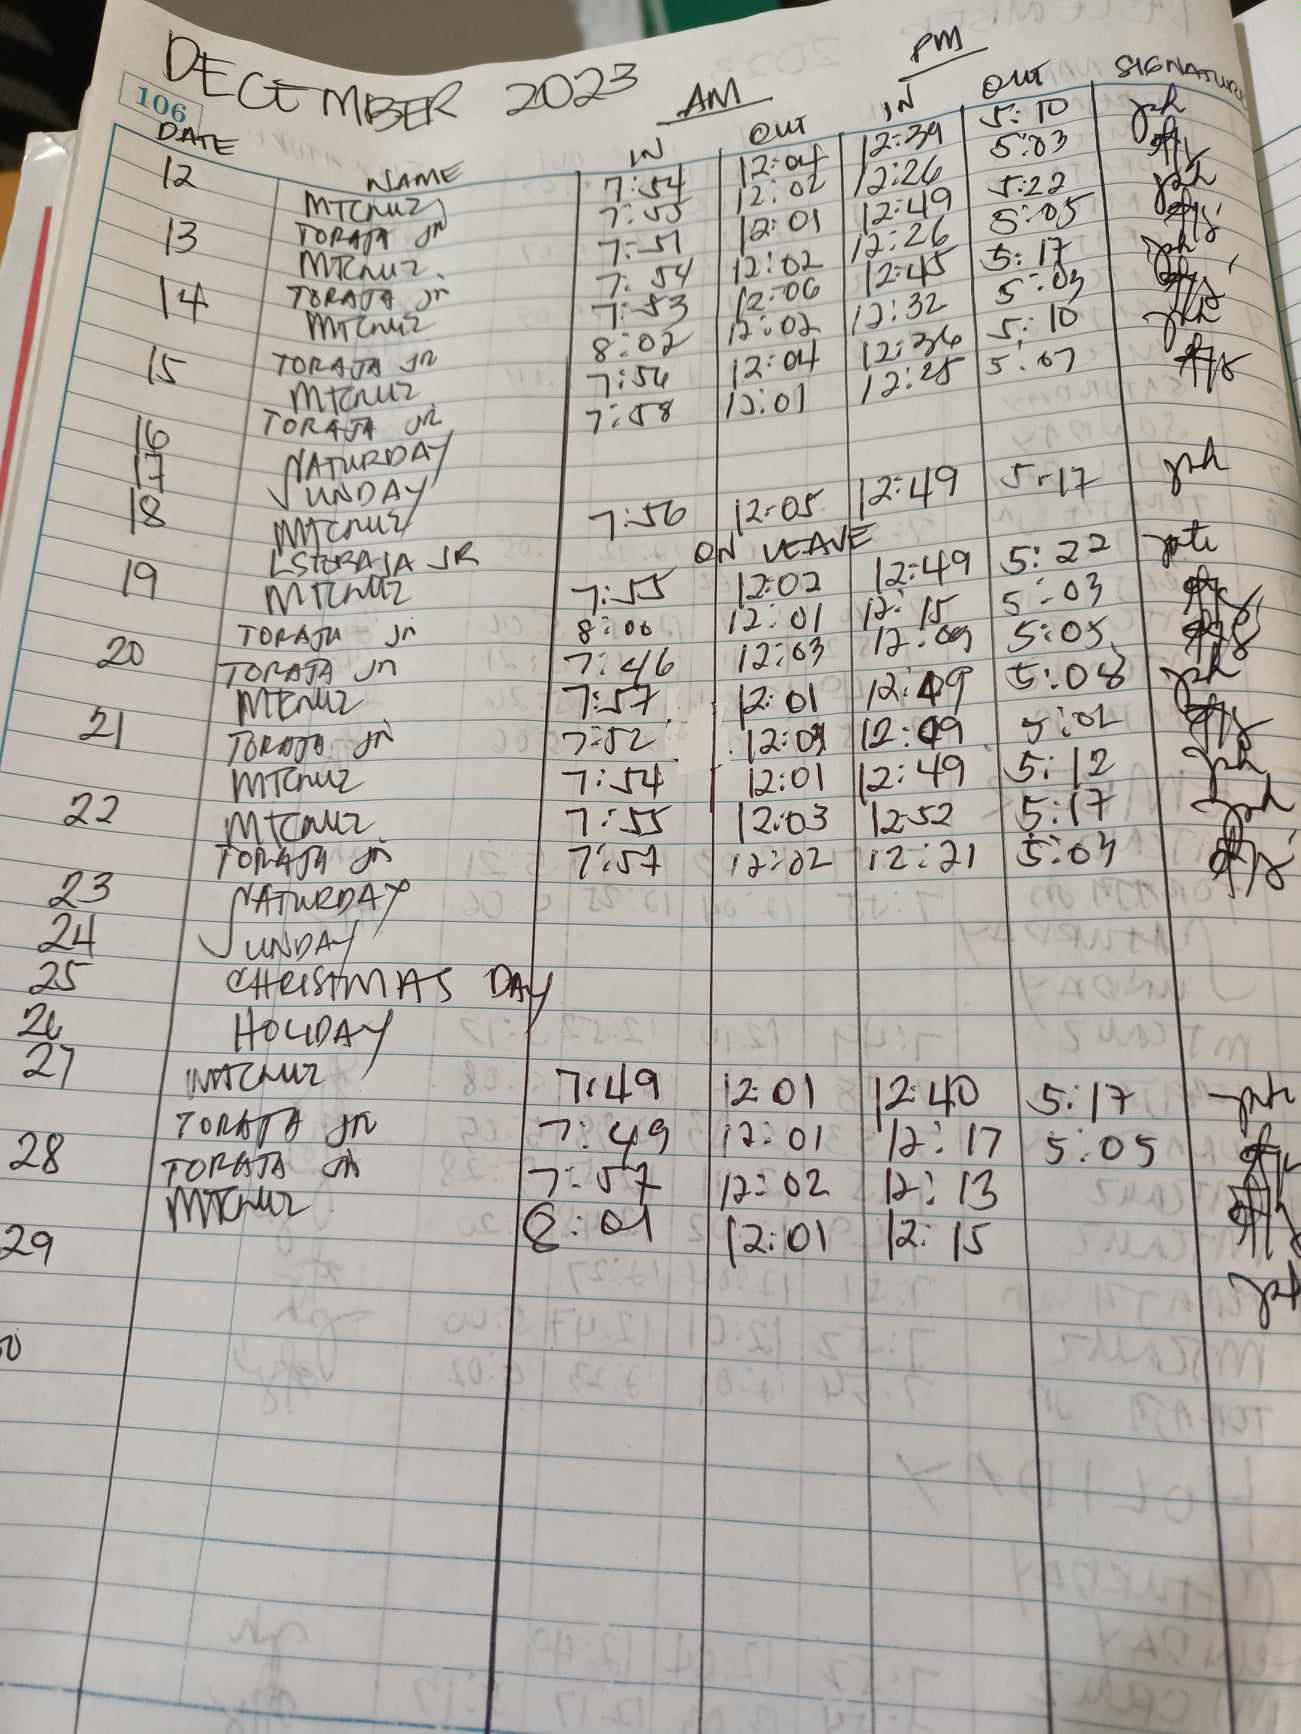 DECEMBER 2023
106
AM PM
DATE NAME IN OUT IN OUT SIGNATURE
12 MTCRUZ 7:54 12:04 12:39 5:10
TORAJA JR 7:55 12:02 12:26 5:03
13 MTCRUZ 7:51 12:01 12:49 5:22
TORAJA JR 7:54 12:02 12:26 5:05
14 MTCRUZ 7:53 12:06 12:45 5:17
TORAJA JR 8:02 12:02 12:32 5:03
15 MTCRUZ 7:56 12:04 12:36 5:10
TORAJA JR 7:58 12:01 12:25 5:07
16 SATURDAY
17 SUNDAY
18 MTCRUZ 7:56 12:05 12:49 5:17
LSTORAJA JR ON LEAVE
19 MTCRUZ 7:55 12:02 12:49 5:22
TORAJA JR 8:00 12:01 12:15 5:03
20 TORAJA JR 7:46 12:03 12:09 5:05
MTCRUZ 7:57 12:01 12:49 5:08
21 TORAJA JR 7:52 12:01 12:09 5:02
MTCRUZ 7:54 12:01 12:49 5:12
22 MTCRUZ 7:55 12:03 12:52 5:17
TORAJA JR 7:57 12:02 12:21 5:03
23 SATURDAY
24 SUNDAY
25 CHRISTMAS DAY
26 HOLIDAY
27 MTCRUZ 7:49 12:01 12:40 5:17
TORAJA JR 7:49 12:01 12:17 5:05
28 TORAJA JR 7:57 12:02 12:13
MTCRUZ 8:01 12:01 12:15
29